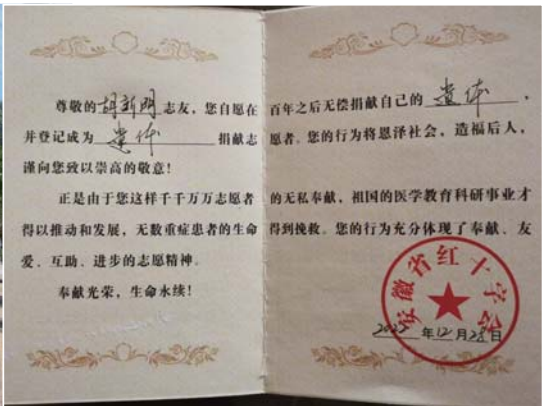 尊敬的胡新明志友，您自愿在百年之后无偿捐献自己的遗体，
并登记成为遗体捐献志愿者。您的行为将恩泽社会，造福后人，
谨向您致以崇高的敬意！
正是由于您这样千千万万志愿者的无私奉献，祖国的医学教育科研事业才
得以推动和发展，无数重症患者的生命得到挽救。您的行为充分体现了奉献、友
爱、互助、进步的志愿精神。
奉献光荣，生命永续！
安徽省红十字会
2022年12月28日